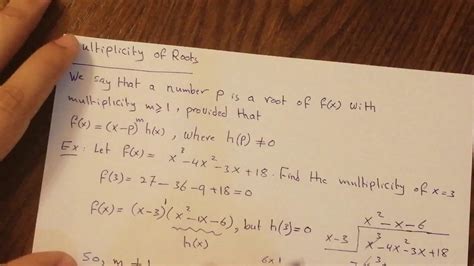 ultiplicity of Roots
We say that a number p is a root of f(x) with
multiplicity m≥1, provided that
f(x) = (x-p)^m h(x), where h(p) ≠ 0
Ex: Let f(x) = x^3-4x^2-3x+18. Find the multiplicity of x=3
f(3) = 27-36-9+18=0
f(x) = (x-3)^1 (x^2-x-6), but h(3)=0
h(x)
x^2-x-6
x-3 x^3-4x^2-3x+18
So, m ≠ 1